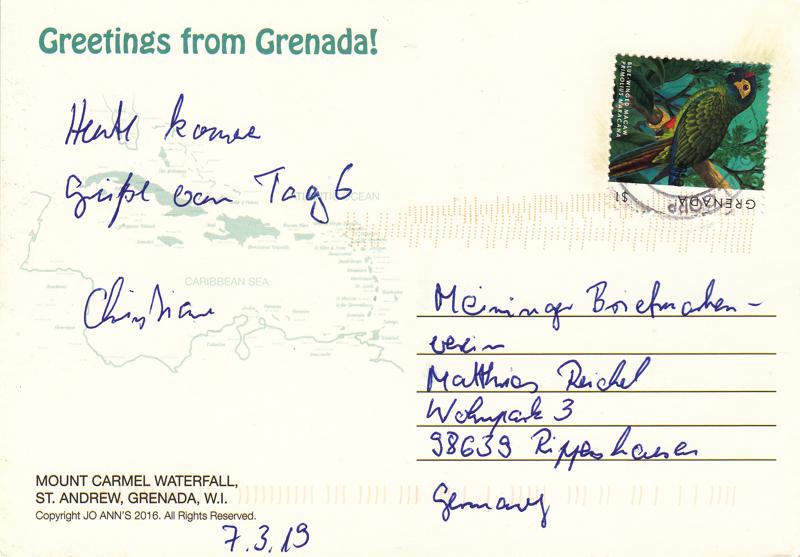 Greetings from Grenada!
BLUE-WINGED MACAW
PRIMOLIUS MARACANA
GRENADA
$1
Heute komme
Grüße vom Tag 6
Christian
ATLANTIC OCEAN
CARIBBEAN SEA
Meininger Briefmarken-
verein
Matthias Reichel
Wohnpark 3
98639 Rippershausen
Germany
MOUNT CARMEL WATERFALL,
ST. ANDREW, GRENADA, W.I.
Copyright JO ANN'S 2016. All Rights Reserved.
7.3.19